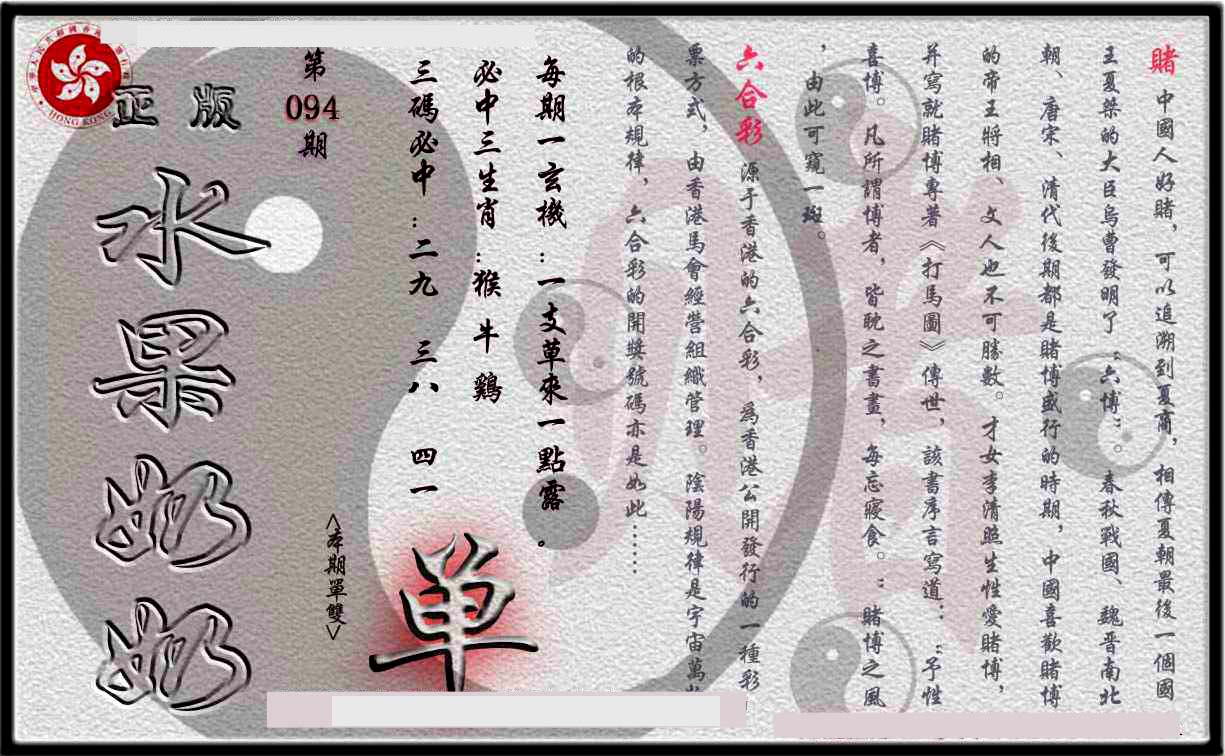 賭 中國人好賭，可以追溯到夏商，相傳夏朝最後一個國
王夏桀的大臣烏曹發明了“六博”。春秋戰國、魏晋南北
朝、唐宋、清代後期都是賭博盛行的時期，中國喜歡賭博
的帝王將相、文人也不可勝數。才女李清照生性愛賭博，
并寫就賭博專著《打馬圖》傳世，該書序言寫道：“予性
喜博。凡所謂博者，皆耽之書畫，每忘寢食。”賭博之風
，由此可窺一斑。
六合彩 源于香港的六合彩，爲香港公開發行的一種彩
票方式，由香港馬會經營組織管理。陰陽規律是宇宙萬
的根本規律，六合彩的開獎號碼亦是如此……
每期一玄機：一支草來一點露。
必中三生肖：猴 牛 鷄
三碼必中：二九 三八 四一
第094期
<本期單雙>
单
正版
水果奶奶
HONG KONG